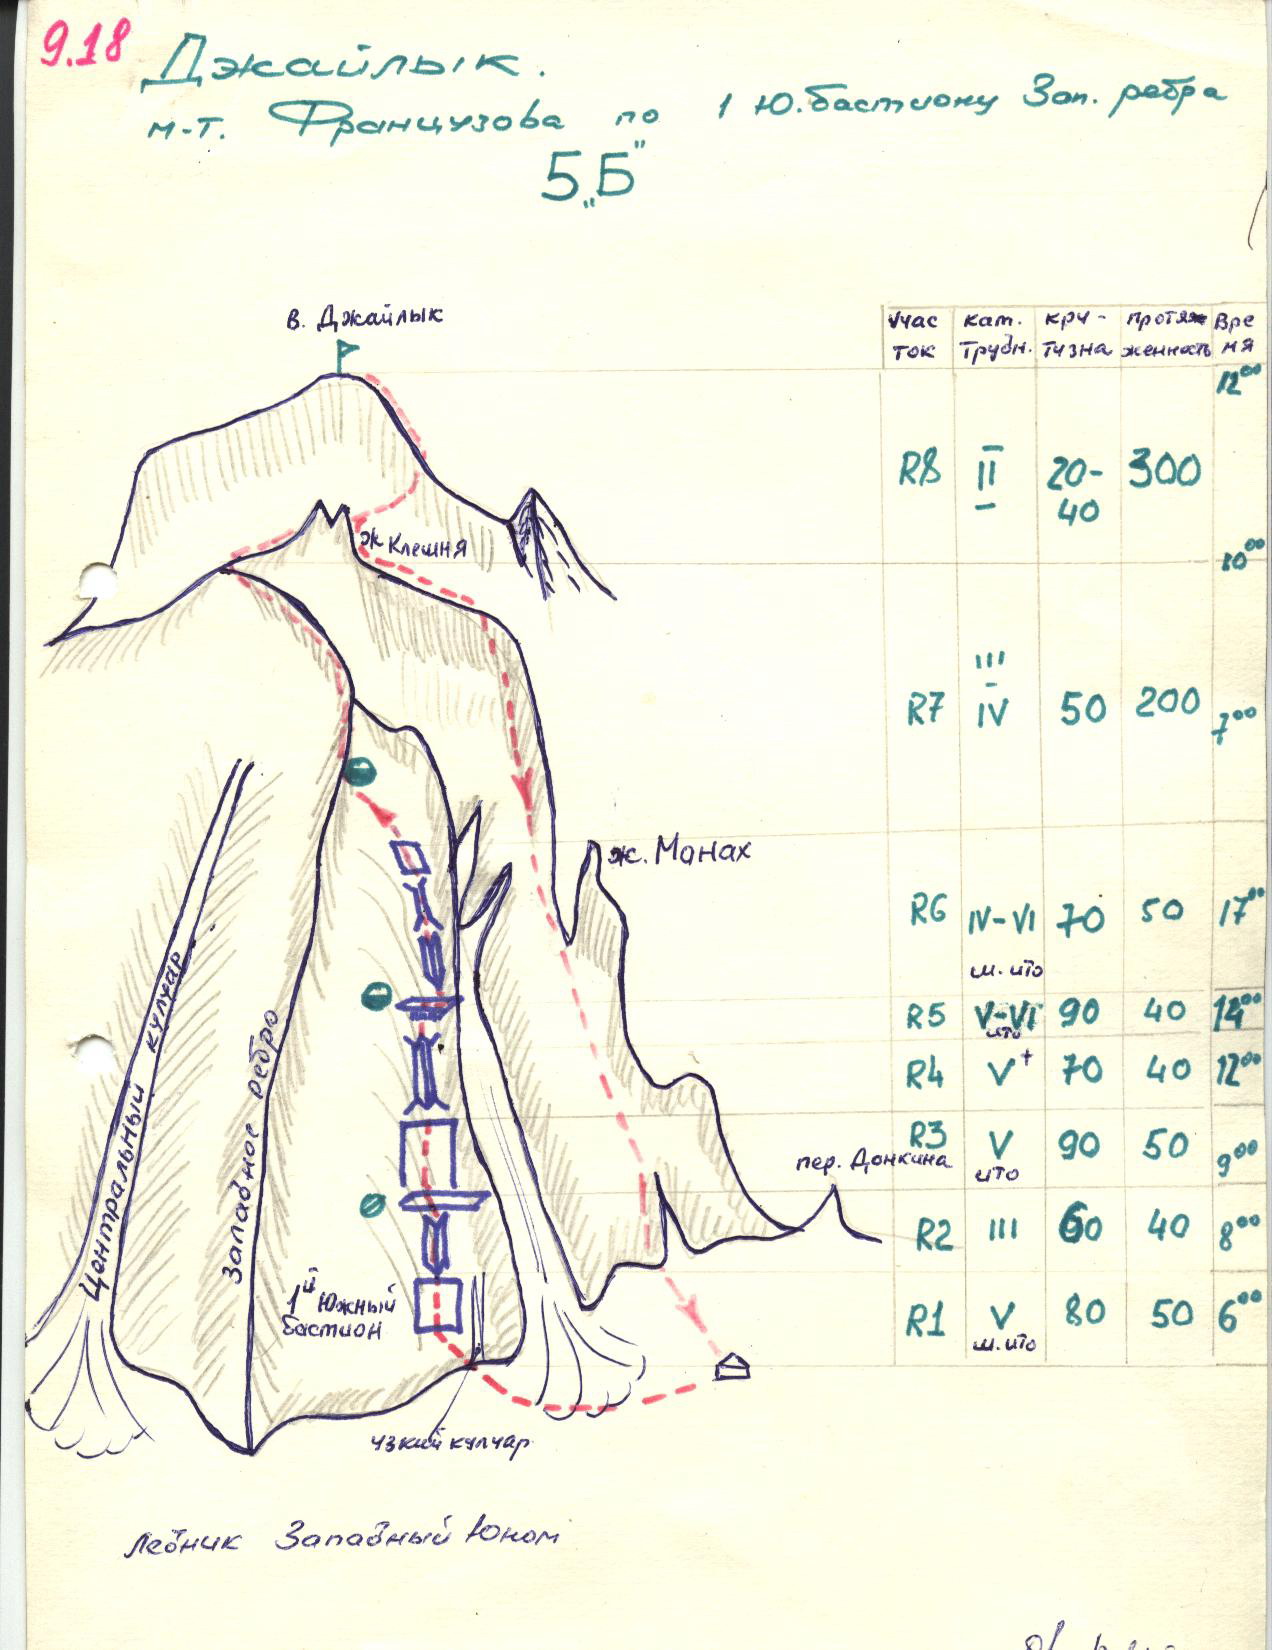 9.18
Джайлык.
м-т. Французова по 1 Ю.бастиону Зап. ребра
5„Б"
в. Джайлык
ж Клешня
ж. Монах
пер. Донкина
Центральный кулуар
Западное ребро
1й Южный
бастион
узкий кулуар
Ледник Западный Юном
Учас ток | кат. трудн. | кру- тизна | протяж женность | Вре мя
12⁰⁰
R8 II – 20-40 300
10⁰⁰
R7 III - IV 50 200 7⁰⁰
R6 IV-VI м. ито 70 50 17⁰⁰
R5 V-VI ито 90 40 14⁰⁰
R4 V+ 70 40 12⁰⁰
R3 V ито 90 50 9⁰⁰
R2 III 60 40 8⁰⁰
R1 V м. ито 80 50 6⁰⁰